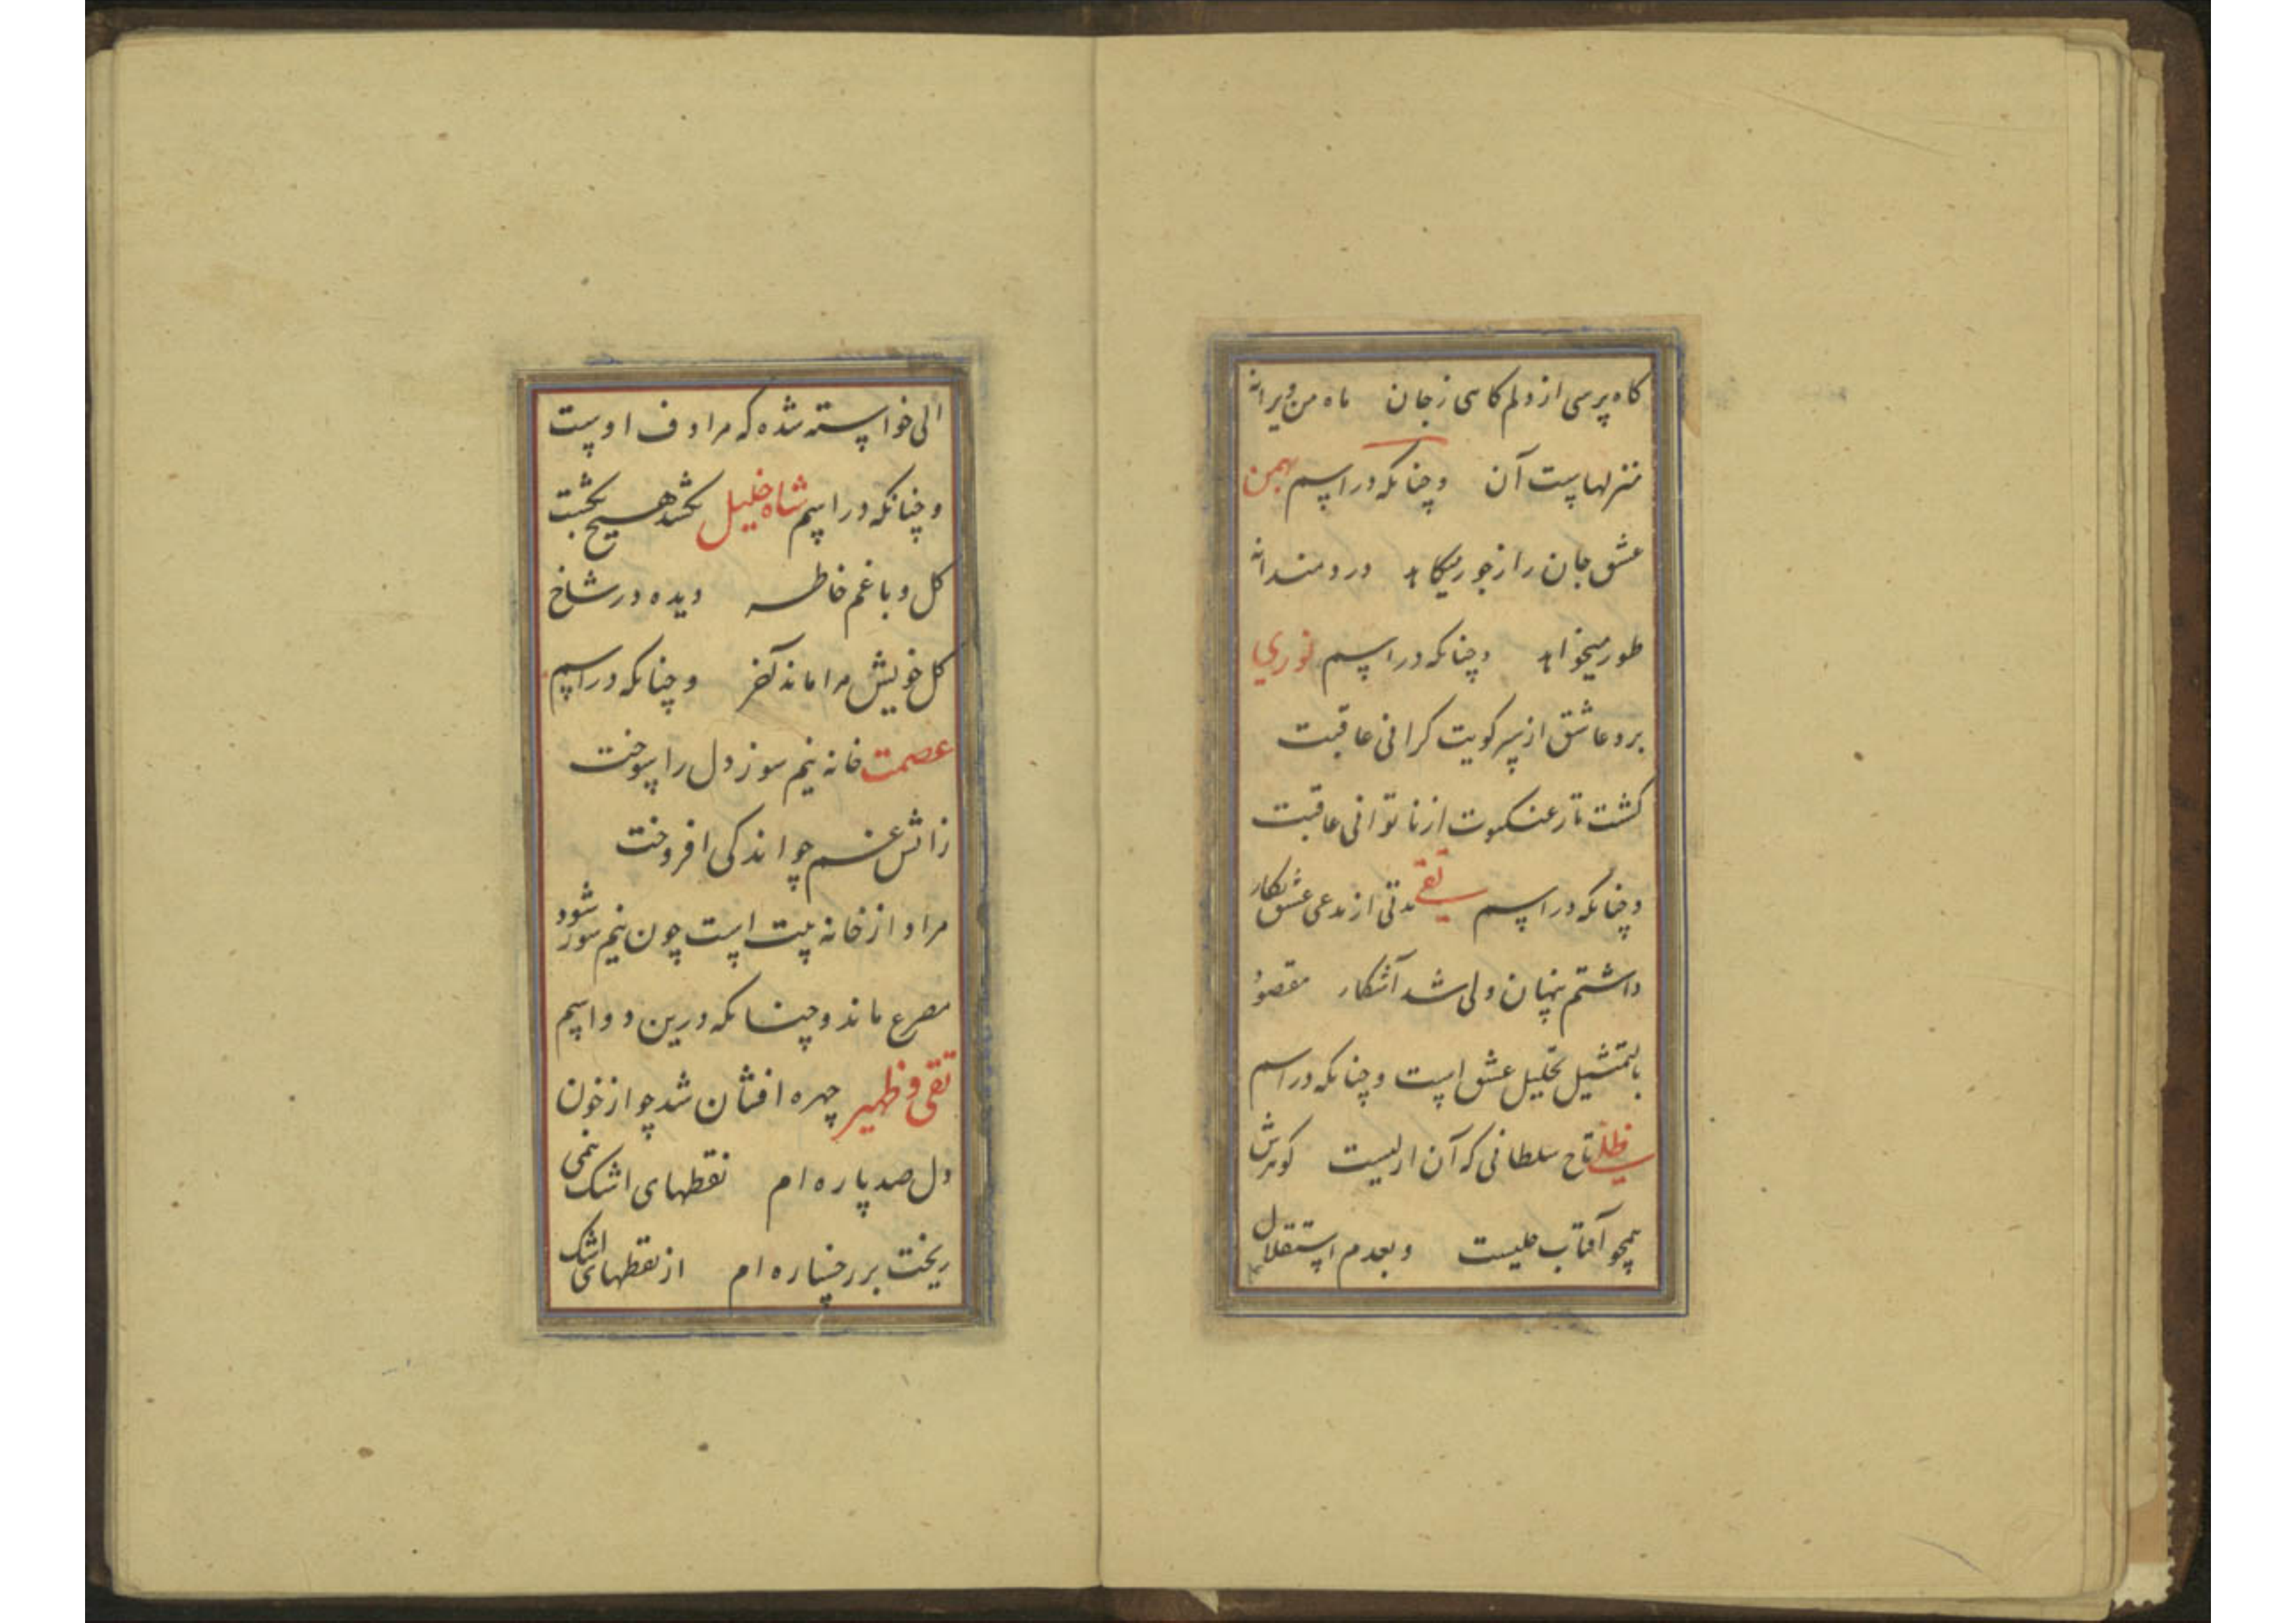 کاه پرسی از دلم کاهی زجان ماه من ویرانه
منزلهاست آن وچنانکه در اسم بهمن
عشق جان را زجور میکاهد دردمندانه
طور میخواهد وچنانکه در اسم نوری
برد عاشق از سر کویت کرانی عاقبت
کشت تار عنکبوت از ناتوانی عاقبت
وچنانکه در اسم تقی مدتی از مدعی عشق نکار
داشتم پنهان ولی شد آشکار مقصود
بالتمثیل تحلیل عشق است وچنانکه در اسم
تاج سلطانی که آن ازلیست کوهرش
همچو آفتاب جلیست وبعدم استقلال
الی خواسته شده که مرادف اوست
وچنانکه در اسم شاه خلیل نکشد هیچ بخت
کل و باغم خاطر دیده در شاخ
کل خویش مرا ماند آخر وچنانکه در اسم
عصمت خانه نیم سوز دل را سوخت
زاتش غم چو اندکی افروخت
مراد از خانه بیت است چون نیم سوز شود
مصرع ماند وچنانکه درین دو اسم
تقی و ظهیر چهره افشان شد چو از خون
دل صد پاره ام نقطهای اشک نمی
ریخت بر رخساره ام از نقطهای اشک